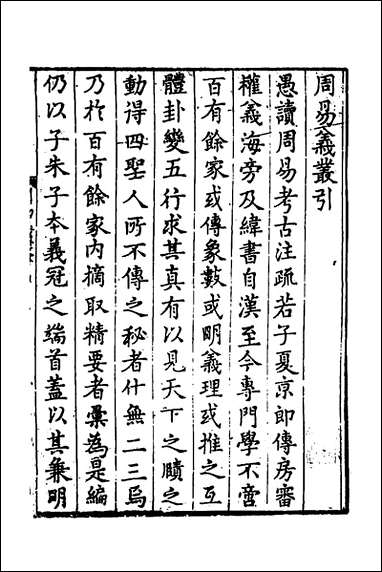 周易義叢引
愚讀周易考古注疏若子夏京卽傳房審
權義海旁及緯書自漢至今專門學不啻
百有餘家或傳象數或明義理或推之互
體卦變五行求其真有以見天下之賾之
動得四聖人所不傳之秘者什無二三焉
乃於百有餘家內摘取精要者彙為是編
仍以子朱子本義冠之端首蓋以其兼明